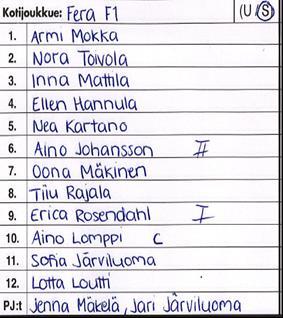 Kotijoukkue: Fera F1 (U /S)
1. Armi Mokka
2. Nora Toivola
3. Inna Mattila
4. Ellen Hannula
5. Nea Kartano
6. Aino Johansson II
7. Oona Mäkinen
8. Tiiu Rajala
9. Erica Rosendahl I
10. Aino Lomppi C
11. Sofia Järviluoma
12. Lotta Loutti
PJ:t Jenna Mäkelä, Jari Järviluoma